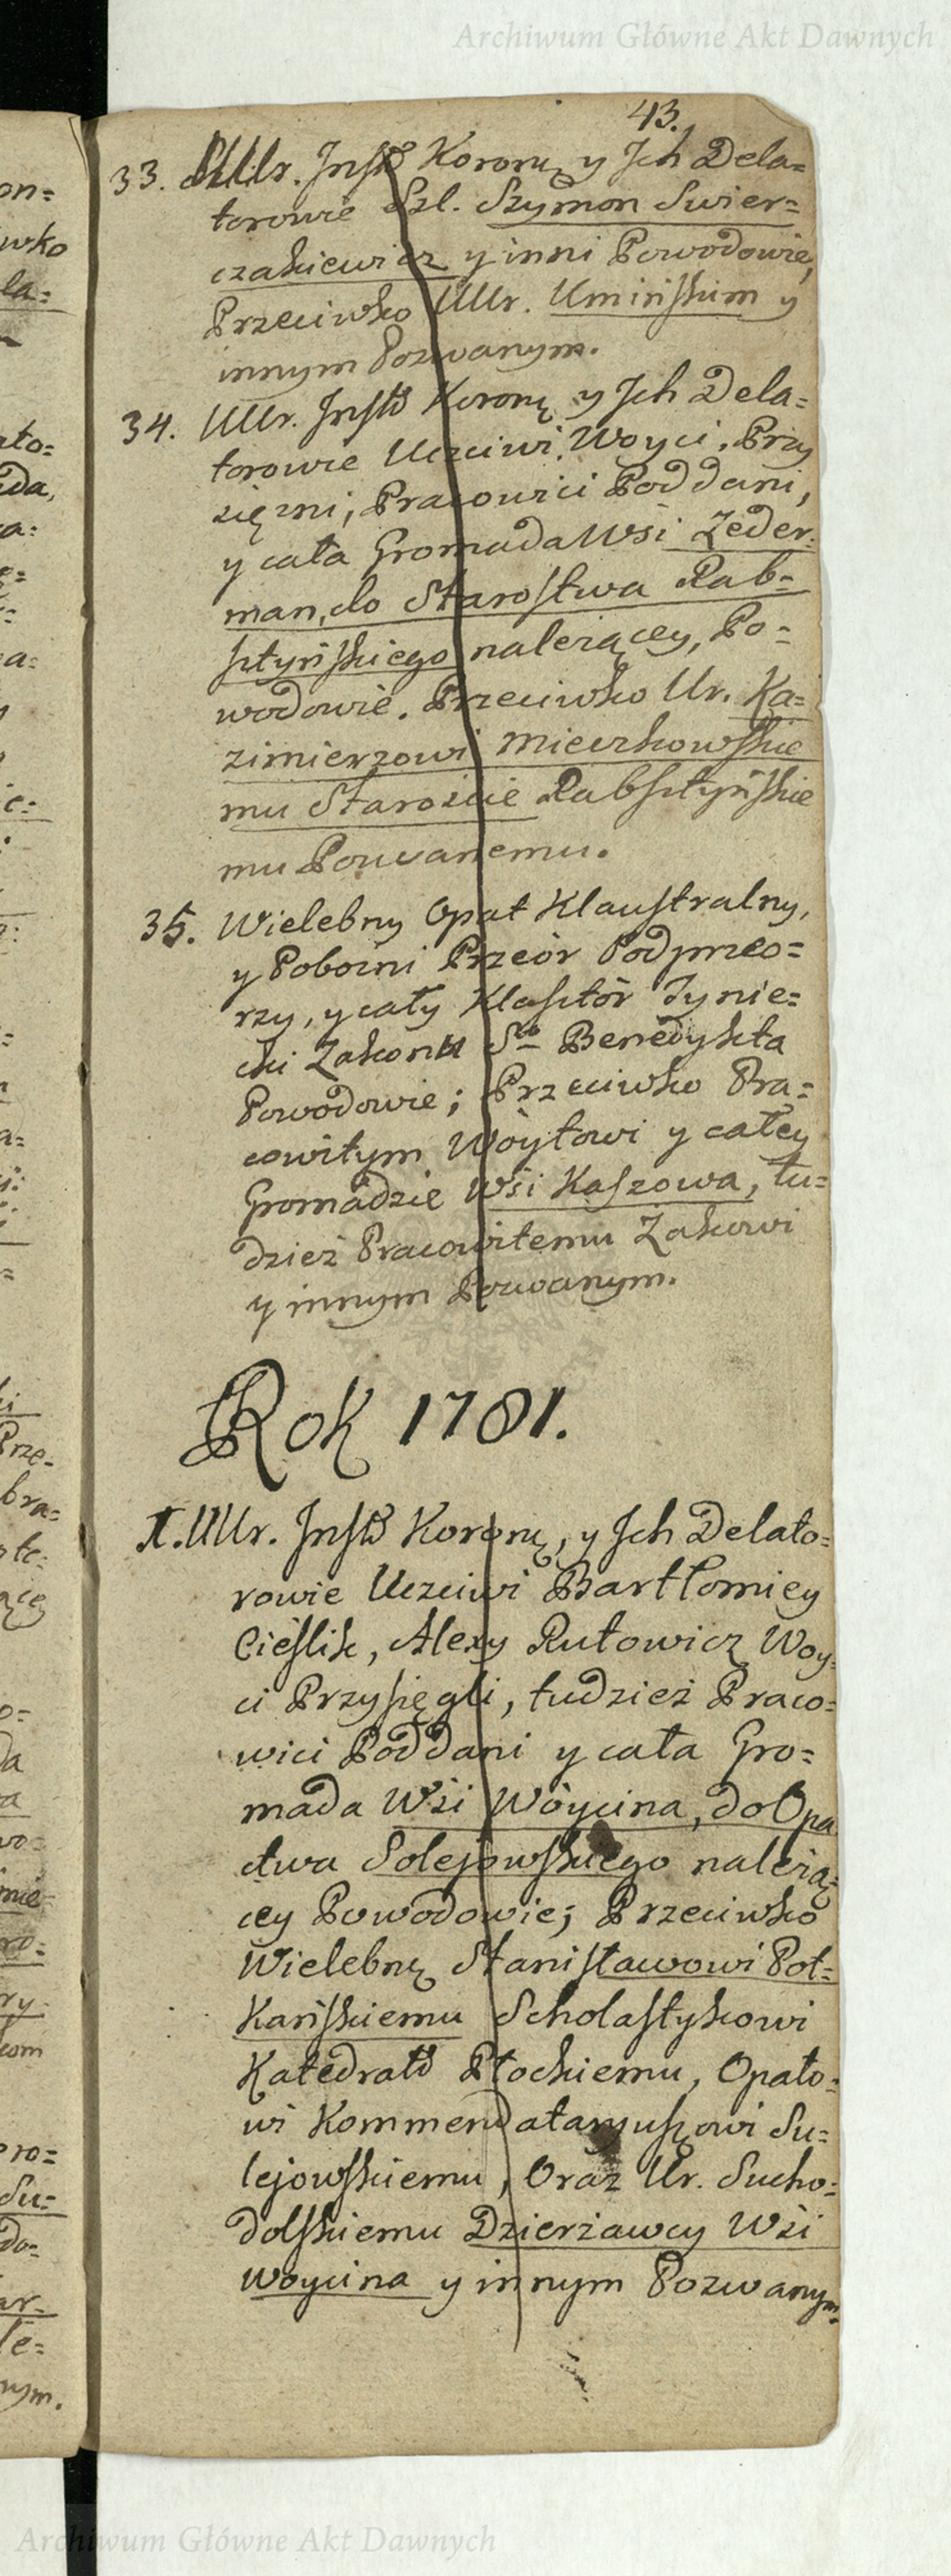 Archiwum Główne Akt Dawnych
43.
33. UUr. Insty Koronų y Ich Dela=
torowie Szl. Szymon Swier=
czakiewicz y inni Powodowie,
Przeciwko UUr. Umińskim y
innym Pozwanym.
34. UUr. Insty Koronų y Ich Dela=
torowie Uczciwi Woyci, Przy
sięzni, Pracowici Poddani,
y cała Gromada Wsi Zeder=
man, do Starostwa Rab=
sztyńskiego nalezącey, Po=
wodowie. Przeciwko Ur. Ka=
zimierzowi Mieczkowskie
mu Staroscie Rabsztyńskie
mu Pozwanemu.
35. Wielebny Opat Klaustralny,
y Pobozni Przeór Podprzeo=
rzy, y cały Klasztór Tynie=
cki Zakonu Sgo Benedykta
Powodowie; Przeciwko Pra=
cowitym Wóytowi y całey
Gromadzie Wsi Kaszowa, tu=
dzież Pracowitemu Zakowi
y innym Pozwanym.
Rok 1781.
1. UUr. Insty Koronų, y Ich Delato=
rowie Uczciwi Bartłomiey
Cieślik, Alexy Rutowicz Woy=
ci Przysięgli, tudzież Praco=
wici Poddani y cała Gro=
mada Wsi Wóycina, do Opa
ctwa Solejowskiego nalezą=
cey Powodowie; Przeciwko
Wielebnų Stanisławowi Poł=
kańskiemu Scholastykowi
Katedralų Płockiemu, Opato=
wi Kommendataryuszowi Su=
lejowskiemu, Oraz Ur. Sucho=
dolskiemu Dzierzawcy Wsi
Woycina y innym Pozwanym.
Archiwum Główne Akt Dawnych